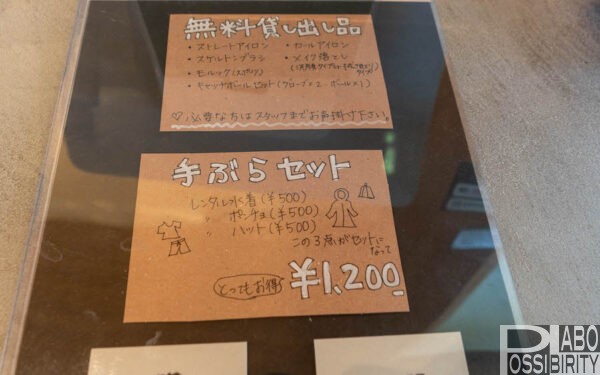 無料貸し出し品
・ストレートアイロン ・カールアイロン
・スケルトンブラシ ・メイク落とし
・モルック(スポーツ)
・キャッチボールセット(グローブ×2・ボール×1)
♡必要な方はスタッフまでお声掛け下さい。
手ぶらセット
レンタル水着(¥500)
〃 ポンチョ(¥500)
〃 ハット(¥500)
この3点がセットに
なって
とってもお得 ¥1,200-
DIABO
POSSIBIRITY